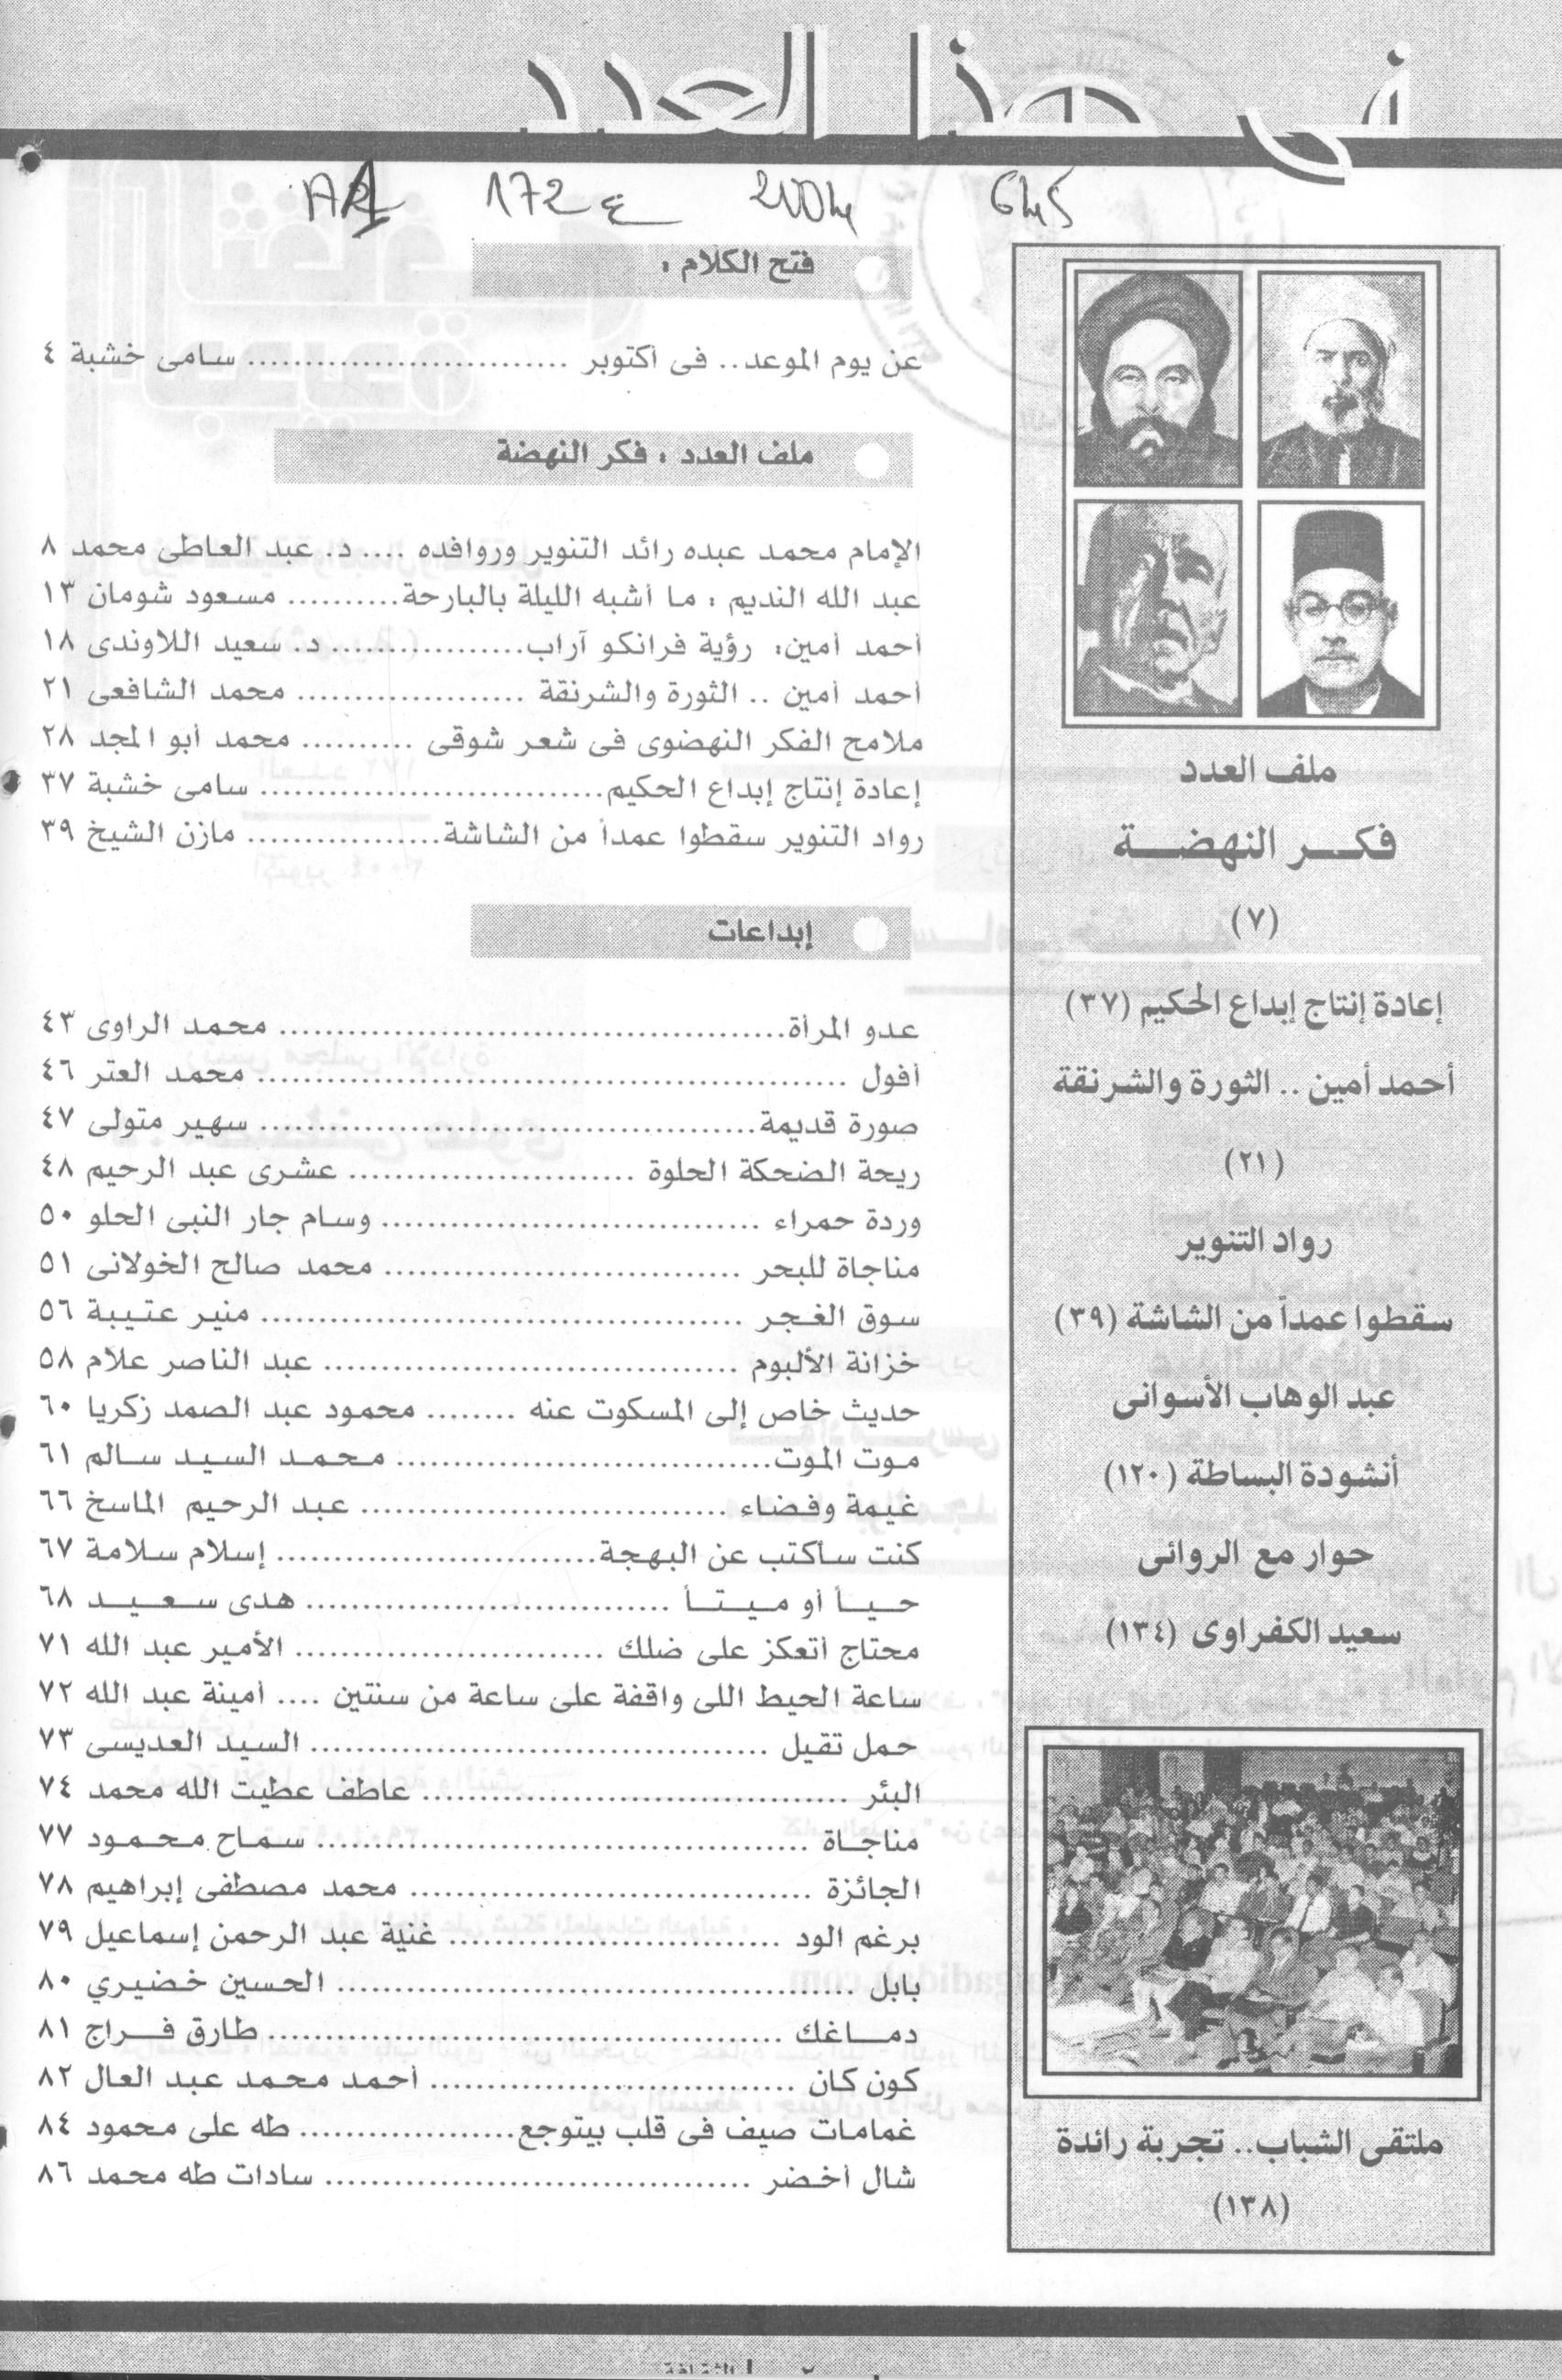 فى هذا العدد
172 2004 645
ملف العدد
فكر النهضة
(٧)
إعادة إنتاج إبداع الحكيم (٣٧)
أحمد أمين .. الثورة والشرنقة
(٢١)
رواد التنوير
سقطوا عمداً من الشاشة (٣٩)
عبد الوهاب الأسوانى
أنشودة البساطة (١٢٠)
حوار مع الروائى
سعيد الكفراوى (١٣٤)
ملتقى الشباب.. تجربة رائدة
(١٣٨)
فتح الكلام :
عن يوم الموعد.. فى أكتوبر ............................ سامى خشبة ٤
ملف العدد : فكر النهضة
الإمام محمد عبده رائد التنوير وروافده .... د. عبد العاطى محمد ٨
عبد الله النديم : ما أشبه الليلة بالبارحة.......... مسعود شومان ١٣
أحمد أمين: رؤية فرانكو آراب................. د. سعيد اللاوندى ١٨
أحمد أمين .. الثورة والشرنقة .................... محمد الشافعى ٢١
ملامح الفكر النهضوى فى شعر شوقى .......... محمد أبو المجد ٢٨
إعادة إنتاج إبداع الحكيم.............................. سامى خشبة ٣٧
رواد التنوير سقطوا عمداً من الشاشة................. مازن الشيخ ٣٩
إبداعات
عدو المرأة............................................ محمد الراوى ٤٣
أفول .................................................... محمد العتر ٤٦
صورة قديمة........................................... سهير متولى ٤٧
ريحة الضحكة الحلوة ......................... عشرى عبد الرحيم ٤٨
وردة حمراء ................................. وسام جار النبى الحلو ٥٠
مناجاة للبحر ............................... محمد صالح الخولانى ٥١
سوق الغجر .......................................... منير عتيبة ٥٦
خزانة الألبوم .................................... عبد الناصر علام ٥٨
حديث خاص إلى المسكوت عنه ........ محمود عبد الصمد زكريا ٦٠
موت الموت................................. محمد السيد سالم ٦١
غيمة وفضاء ................................ عبد الرحيم الماسخ ٦٦
كنت سأكتب عن البهجة............................ إسلام سلامة ٦٧
حياً أو ميتاً ................................ هدى سعيد ٦٨
محتاج أتعكز على ضلك ........................... الأمير عبد الله ٧١
ساعة الحيط اللى واقفة على ساعة من سنتين .... أمينة عبد الله ٧٢
حمل تقيل ........................................ السيد العديسى ٧٣
البئر ..................................... عاطف عطيت الله محمد ٧٤
مناجاة ........................................... سماح محمود ٧٧
الجائزة ................................... محمد مصطفى إبراهيم ٧٨
برغم الود ............................. غنية عبد الرحمن إسماعيل ٧٩
بابل ............................................. الحسين خضيري ٨٠
دماغك ............................................. طارق فراج ٨١
كون كان ................................ أحمد محمد عبد العال ٨٢
غمامات صيف فى قلب بيتوجع................... طه على محمود ٨٤
شال أخضر ..................................... سادات طه محمد ٨٦